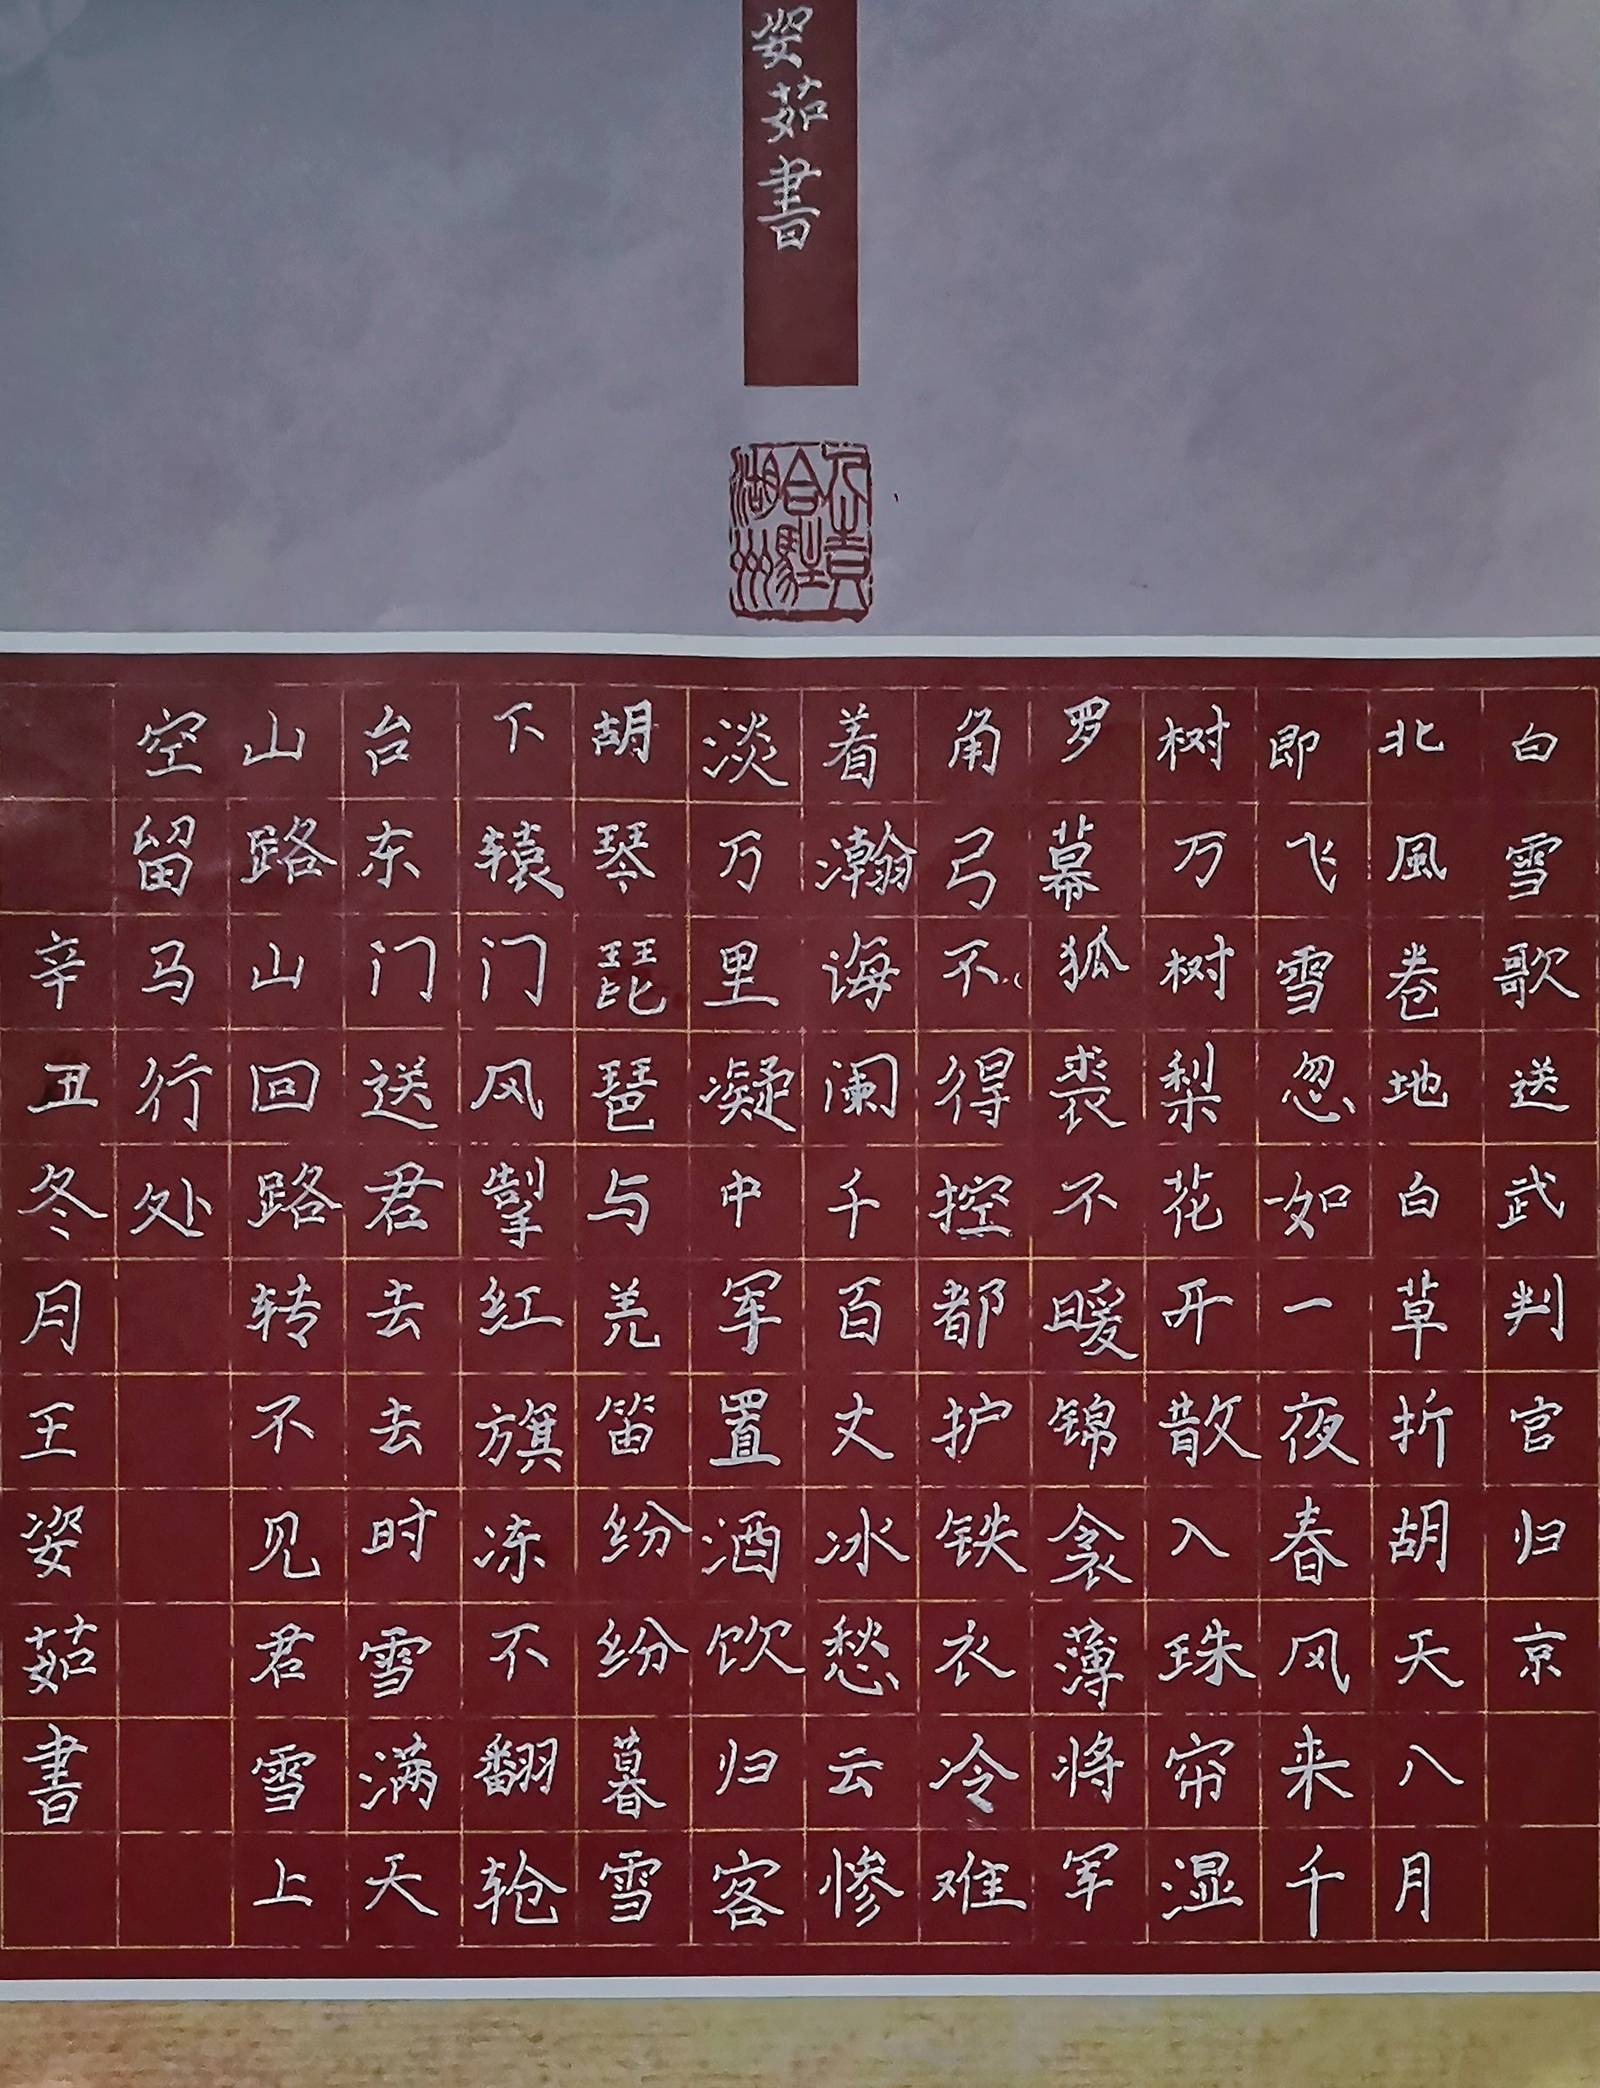 姿茹書
白雪歌送武判官归京
北風卷地白草折胡天八月
即飞雪忽如一夜春风来千
树万树梨花开散入珠帘湿
罗幕狐裘不暖锦衾薄将军
角弓不得控都护铁衣冷难
着瀚诲阑千百丈冰愁云惨
淡万里凝中军置酒饮归客
胡琴琵琶与羌笛纷纷暮雪
下辕门风掣红旗冻不翻轮
台东门送君去去时雪满天
山路山回路转不见君雪上
空留马行处
辛丑冬月王姿茹書